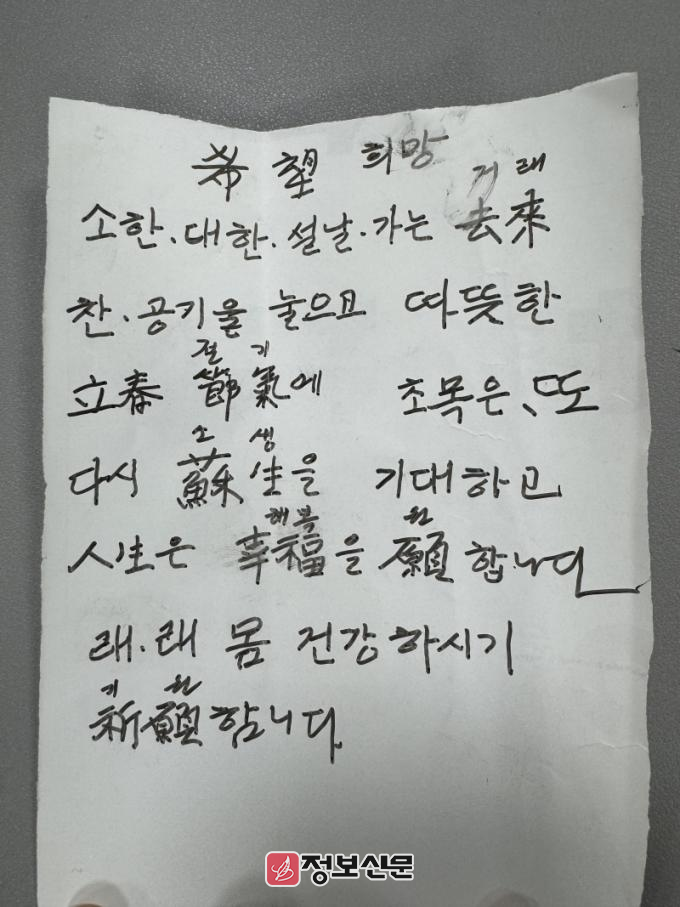 希望 희망
거래
소한.대한.설날.가는 去來
찬.공기울 눌으고 따뜻한
절기
立春 節氣에 초목은、또
소생
다시 蘇生을 기대하고
행복 원
人生은 幸福을 願합니다
래.래 몸 건강하시기
기원
祈願합니다.
정보신문